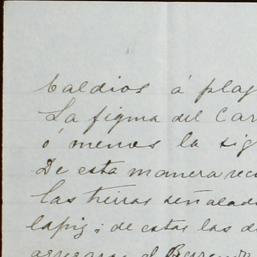 baldios á plaz
La figura del Car
ó menos la sig
De esta manera rec
las tierras señalad
lapiz; de estas las d